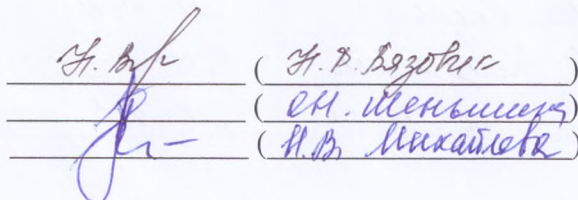 Н. Вя (Н. В. Вязович)
(О.Н. Меньшикова)
(Н.В. Михайлова)